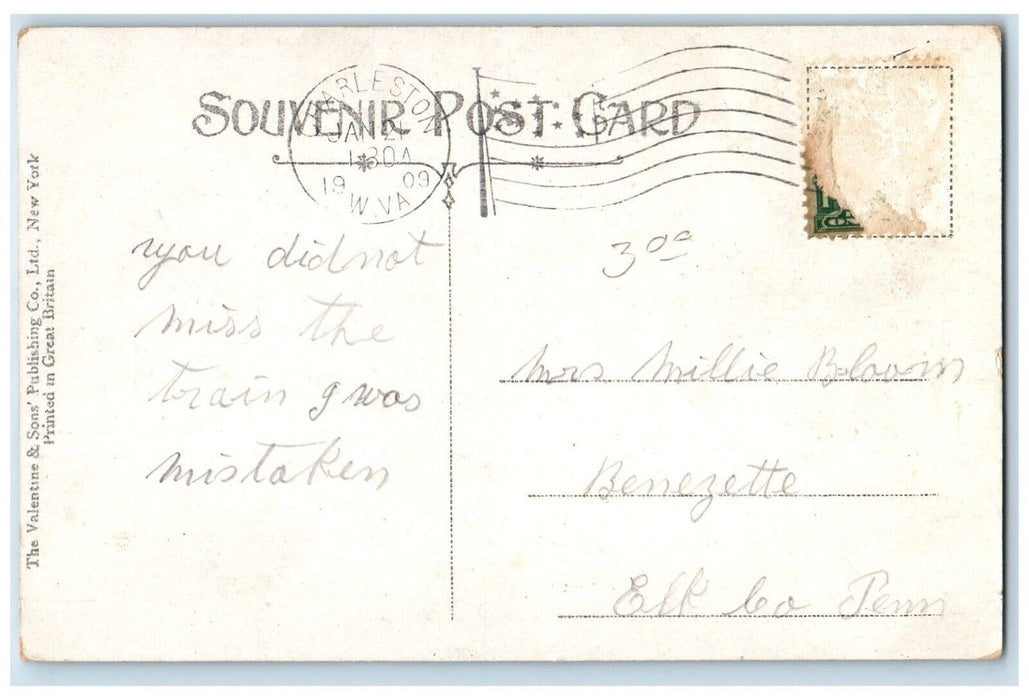 SOUVENIR POST CARD
CHARLESTON
JAN 21
1 30A
19 09
W.VA
The Valentine & Sons' Publishing Co., Ltd., New York
Printed in Great Britain
you did not
miss the
train I was
mistaken
3 00
Mrs Millie Bloom
Benezette
Elk Co Penn